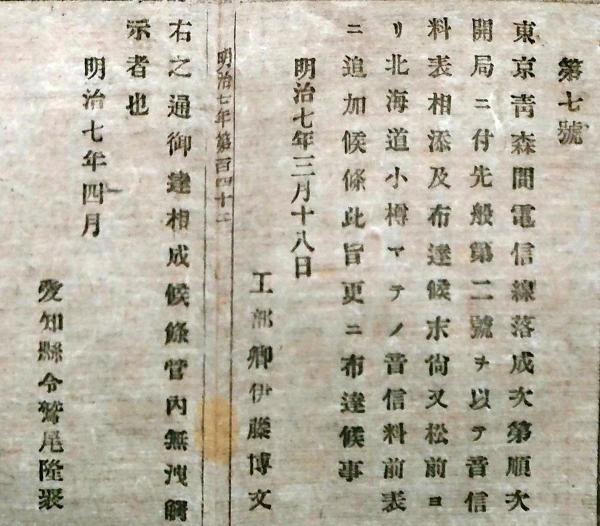 第七號
東京靑森間電信線落成次第順次
開局ニ付先般第二號ヲ以テ音信
料表相添及布達候末尙又松前ヨ
リ北海道小樽マテノ音信料前表
ニ追加候條此旨更ニ布達候事
明治七年三月十八日
工部卿伊藤博文
明治七年第百四十二
右之通御達相成候條管內無洩觸
示者也
明治七年四月
愛知縣令鷲尾隆聚